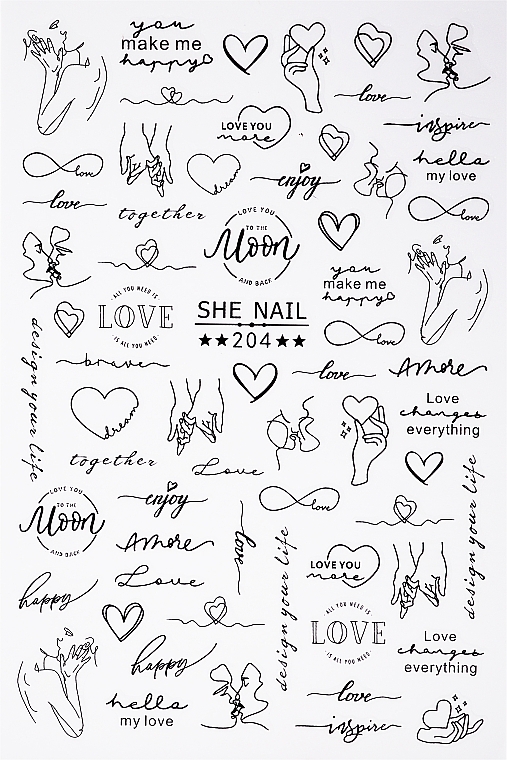 you
make me
happy
love
LOVE YOU
more
inspire
hello
my love
love
dream
enjoy
love
love
together
LOVE YOU
TO THE
Moon
AND BACK
you
make me
happy
ALL YOU NEED IS
LOVE
IS ALL YOU NEED
SHE NAIL
★★204★★
love
design your life
brave
love
Amore
dream
Love
changes
everything
together
Love
enjoy
love
LOVE YOU
TO THE
Moon
AND BACK
Amore
love
design your life
design your life
LOVE YOU
more
happy
Love
ALL YOU NEED IS
LOVE
IS ALL YOU NEED
Love
changes
everything
happy
hello
my love
love
inspire